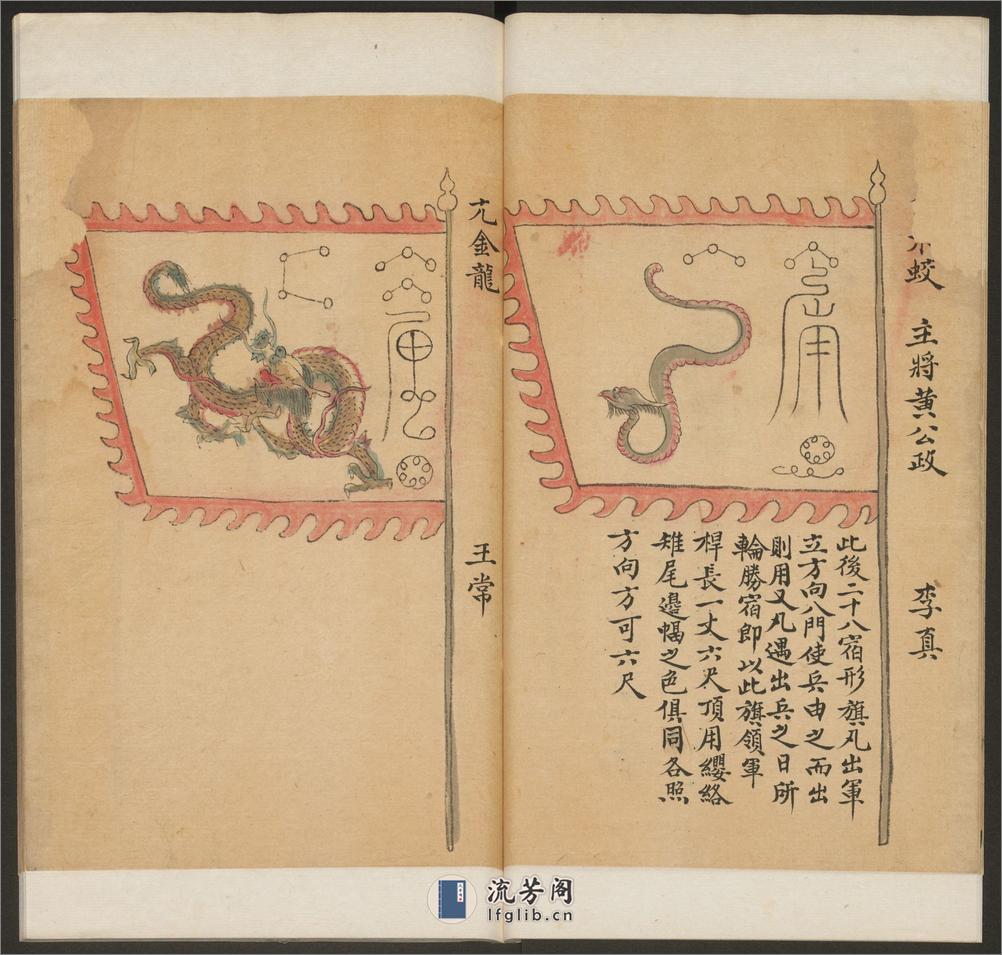 木蛟 主將黄公政 李真
此後二十八宿形旗凡出軍
立方向八門使兵由之而出
則用又凡遇出兵之日所
輪勝宿即以此旗領軍
桿長一丈六尺頂用纓絡
雉尾邊幅之色俱同各照
方向方可六尺
亢金龍 王常
流芳阁
lfglib.cn